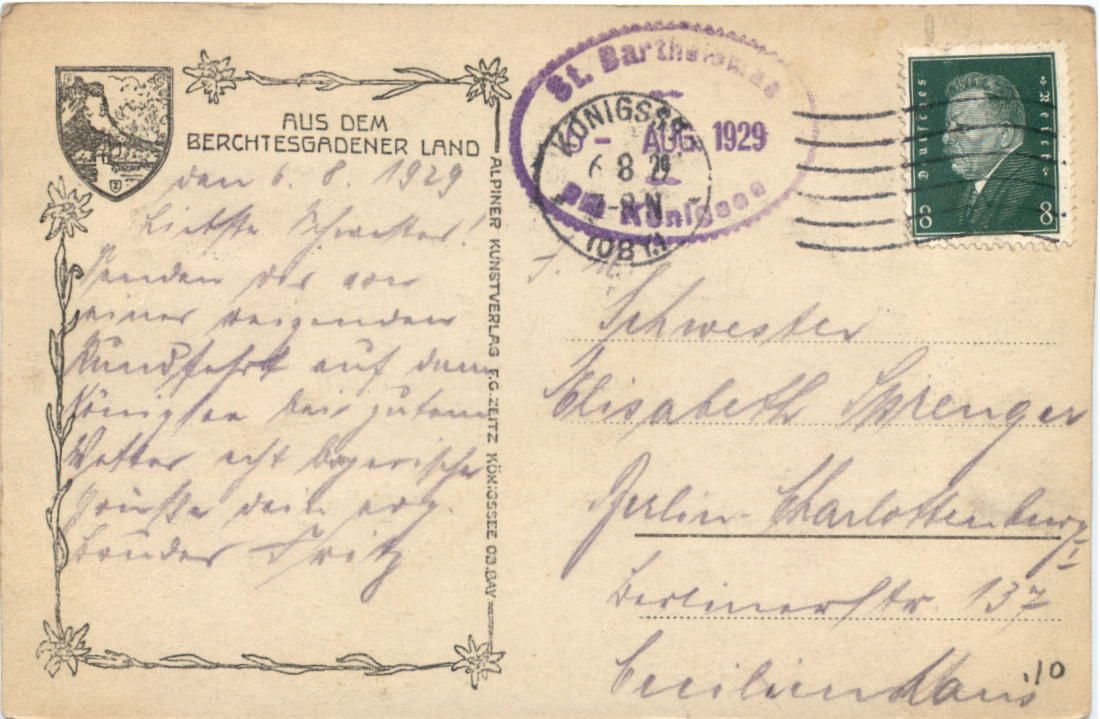 AUS DEM
BERCHTESGADENER LAND
den 6. 8. 1929
Liebste Schwester!
Senden dir von
einer reizenden
Rundfahrt auf dem
Königsee bei gutem
Wetter echt bayerische
Grüße dein
Bruder Fritz
ALPINER KUNSTVERLAG F.G. ZEITZ KÖNIGSSEE OB.BAY
St. Bartholomae
AUG. 1929
Königsee
KÖNIGSSEE
6 8 29
8-9 N
Deutsches Reich
8 8
Schwester
Elisabeth Sprenger
Berlin-Charlottenburg
Berlinerstr. 137
Cecilienhaus
10